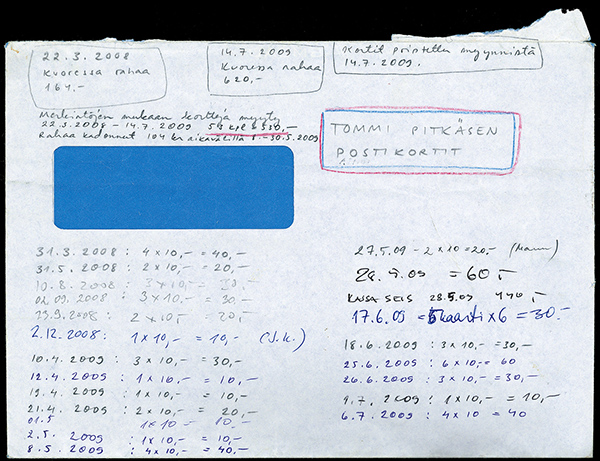 22.3.2008
Kuoressa rahaa
164.-
14.7.2009
Kuoressa rahaa
620,-
Kortit poistettu myynnistä
14.7.2009.
Merkintöjen mukaan kortteja myyty
22.3.2008 – 14.7.2009 54 kpl
Rahaa kadonnut 104 - 30.5.2009
TOMMI PITKÄSEN
POSTIKORTIT
31.3.2008: 4 x 10,- = 40,-
31.5.2008: 2 x 10,- = 20,-
10.8.2008: 3 x 10,- = 30,-
02.09.2008: 3 x 10,- = 30,-
2008: 2 x 10 20,-
2.12.2008: 1 x 10,- = 10,- (J.K.)
10.4.2009: 3 x 10,- = 30,-
12.4.2009: 1 x 10,- = 10,-
19.4.2009: 1 x 10,- = 10,-
21.4.2009: 2 x 10,- = 20,-
01.5 1 x 10 = 10,-
2.5.2009: 1 x 10,- = 10,-
8.5.2009: 4 x 10,- = 40,-
27.5.09 - 2 x 10 = 20,-
09 = 60,-
KASSA SEIS 28.5.09 440,-
17.6.09 = 5 kaarti x 6 = 30.-
18.6.2009: 3 x 10,- = 30,-
25.6.2009: 6 x 10,- = 60
26.6.2009: 3 x 10,- = 30,-
4.7.2009: 1 x 10,- = 10,-
6.7.2009: 4 x 10 = 40